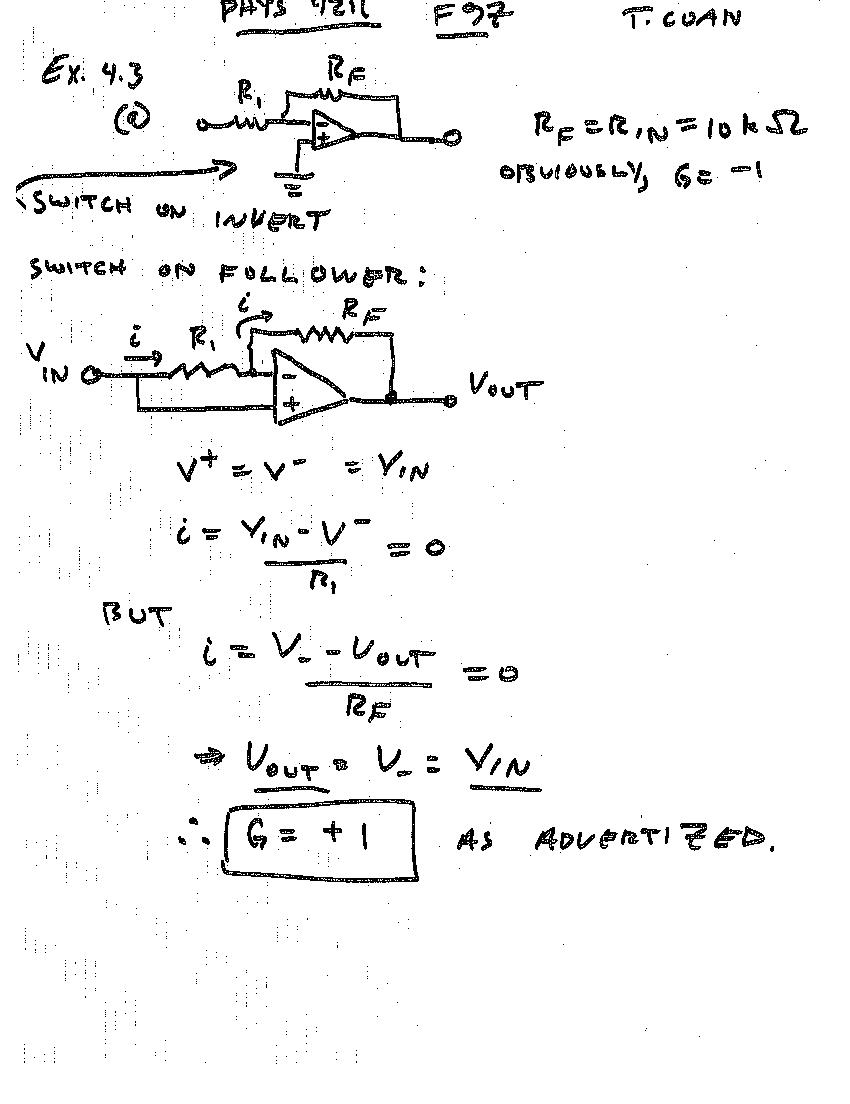 PHYS 4211 F97 T. COAN
Ex. 4.3
(a)
R₁ RF
- +
RF = RIN = 10 kΩ
OBVIOUSLY, G = -1
SWITCH ON INVERT
SWITCH ON FOLLOWER:
VIN i R₁ i RF
- +
VOUT
V⁺ = V⁻ = VIN
i = VIN - V⁻ / R₁ = 0
BUT
i = V₋ - VOUT / RF = 0
⇒ VOUT = V₋ = VIN
∴ G = +1 AS ADVERTIZED.